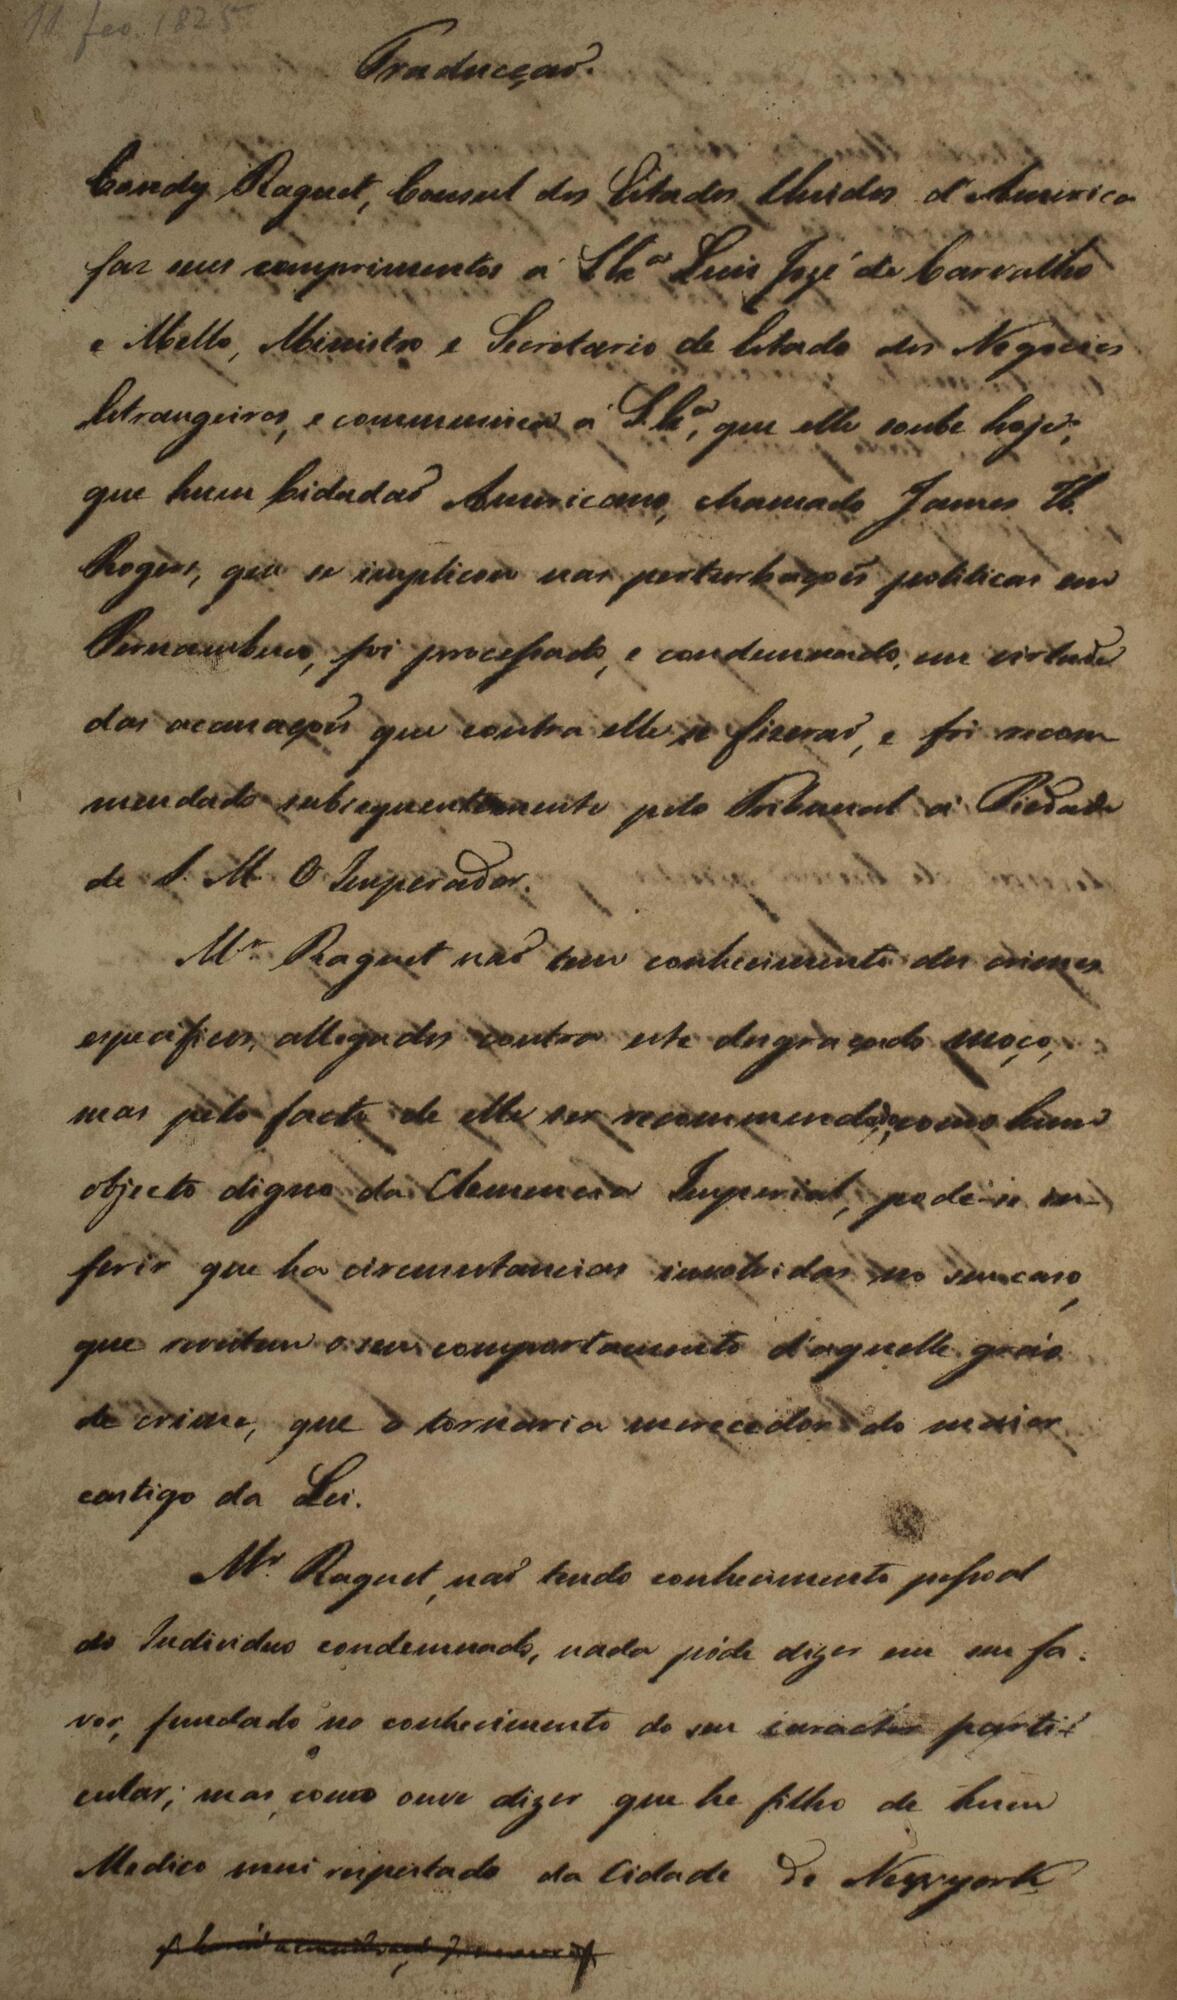 11 fev. 1825
Traducçaõ.
Condy Raguet, Consul dos Estados Unidos d'America
faz seus comprimentos á S. Ex.ª Luis Jozé de Carvalho
e Mello, Ministro e Secretario de Estado dos Negocios
Estrangeiros, e communica á S. Ex.ª, que elle soube hoje,
que hum Cidadaõ Americano, chamado James H.
Rogers, que se implicou nas perturbaçoẽs politicas em
Pernambuco, foi processado, e condemnado, em virtude
das acusaçoẽs que contra elle se fizeraõ, e foi recom
mendado subsequentemente pelo Tribunal á Piedade
de S. M. O Imperador.
Mr. Raguet naõ tem conhecimento dos crimes
especificos, allegados contra este desgraçado moço,
mas pelo facto de elle ser recommendado, como hum
objecto digno da Clemencia Imperial, pode-se in-
ferir que ha circumstancias involvidas no seu caso,
que revistem o seu comportamento d'aquelle gráo
de crime, que o tornaria merecedor do maior
castigo da Lei.
Mr. Raguet, naõ tendo conhecimento pessoal
do Individuo condemnado, nada póde dizer em seu fa-
vor, fundado no conhecimento do seu caracter parti-
cular; mas, como ouve dizer que he filho de hum
Medico mui respeitado da Cidade de Newyork